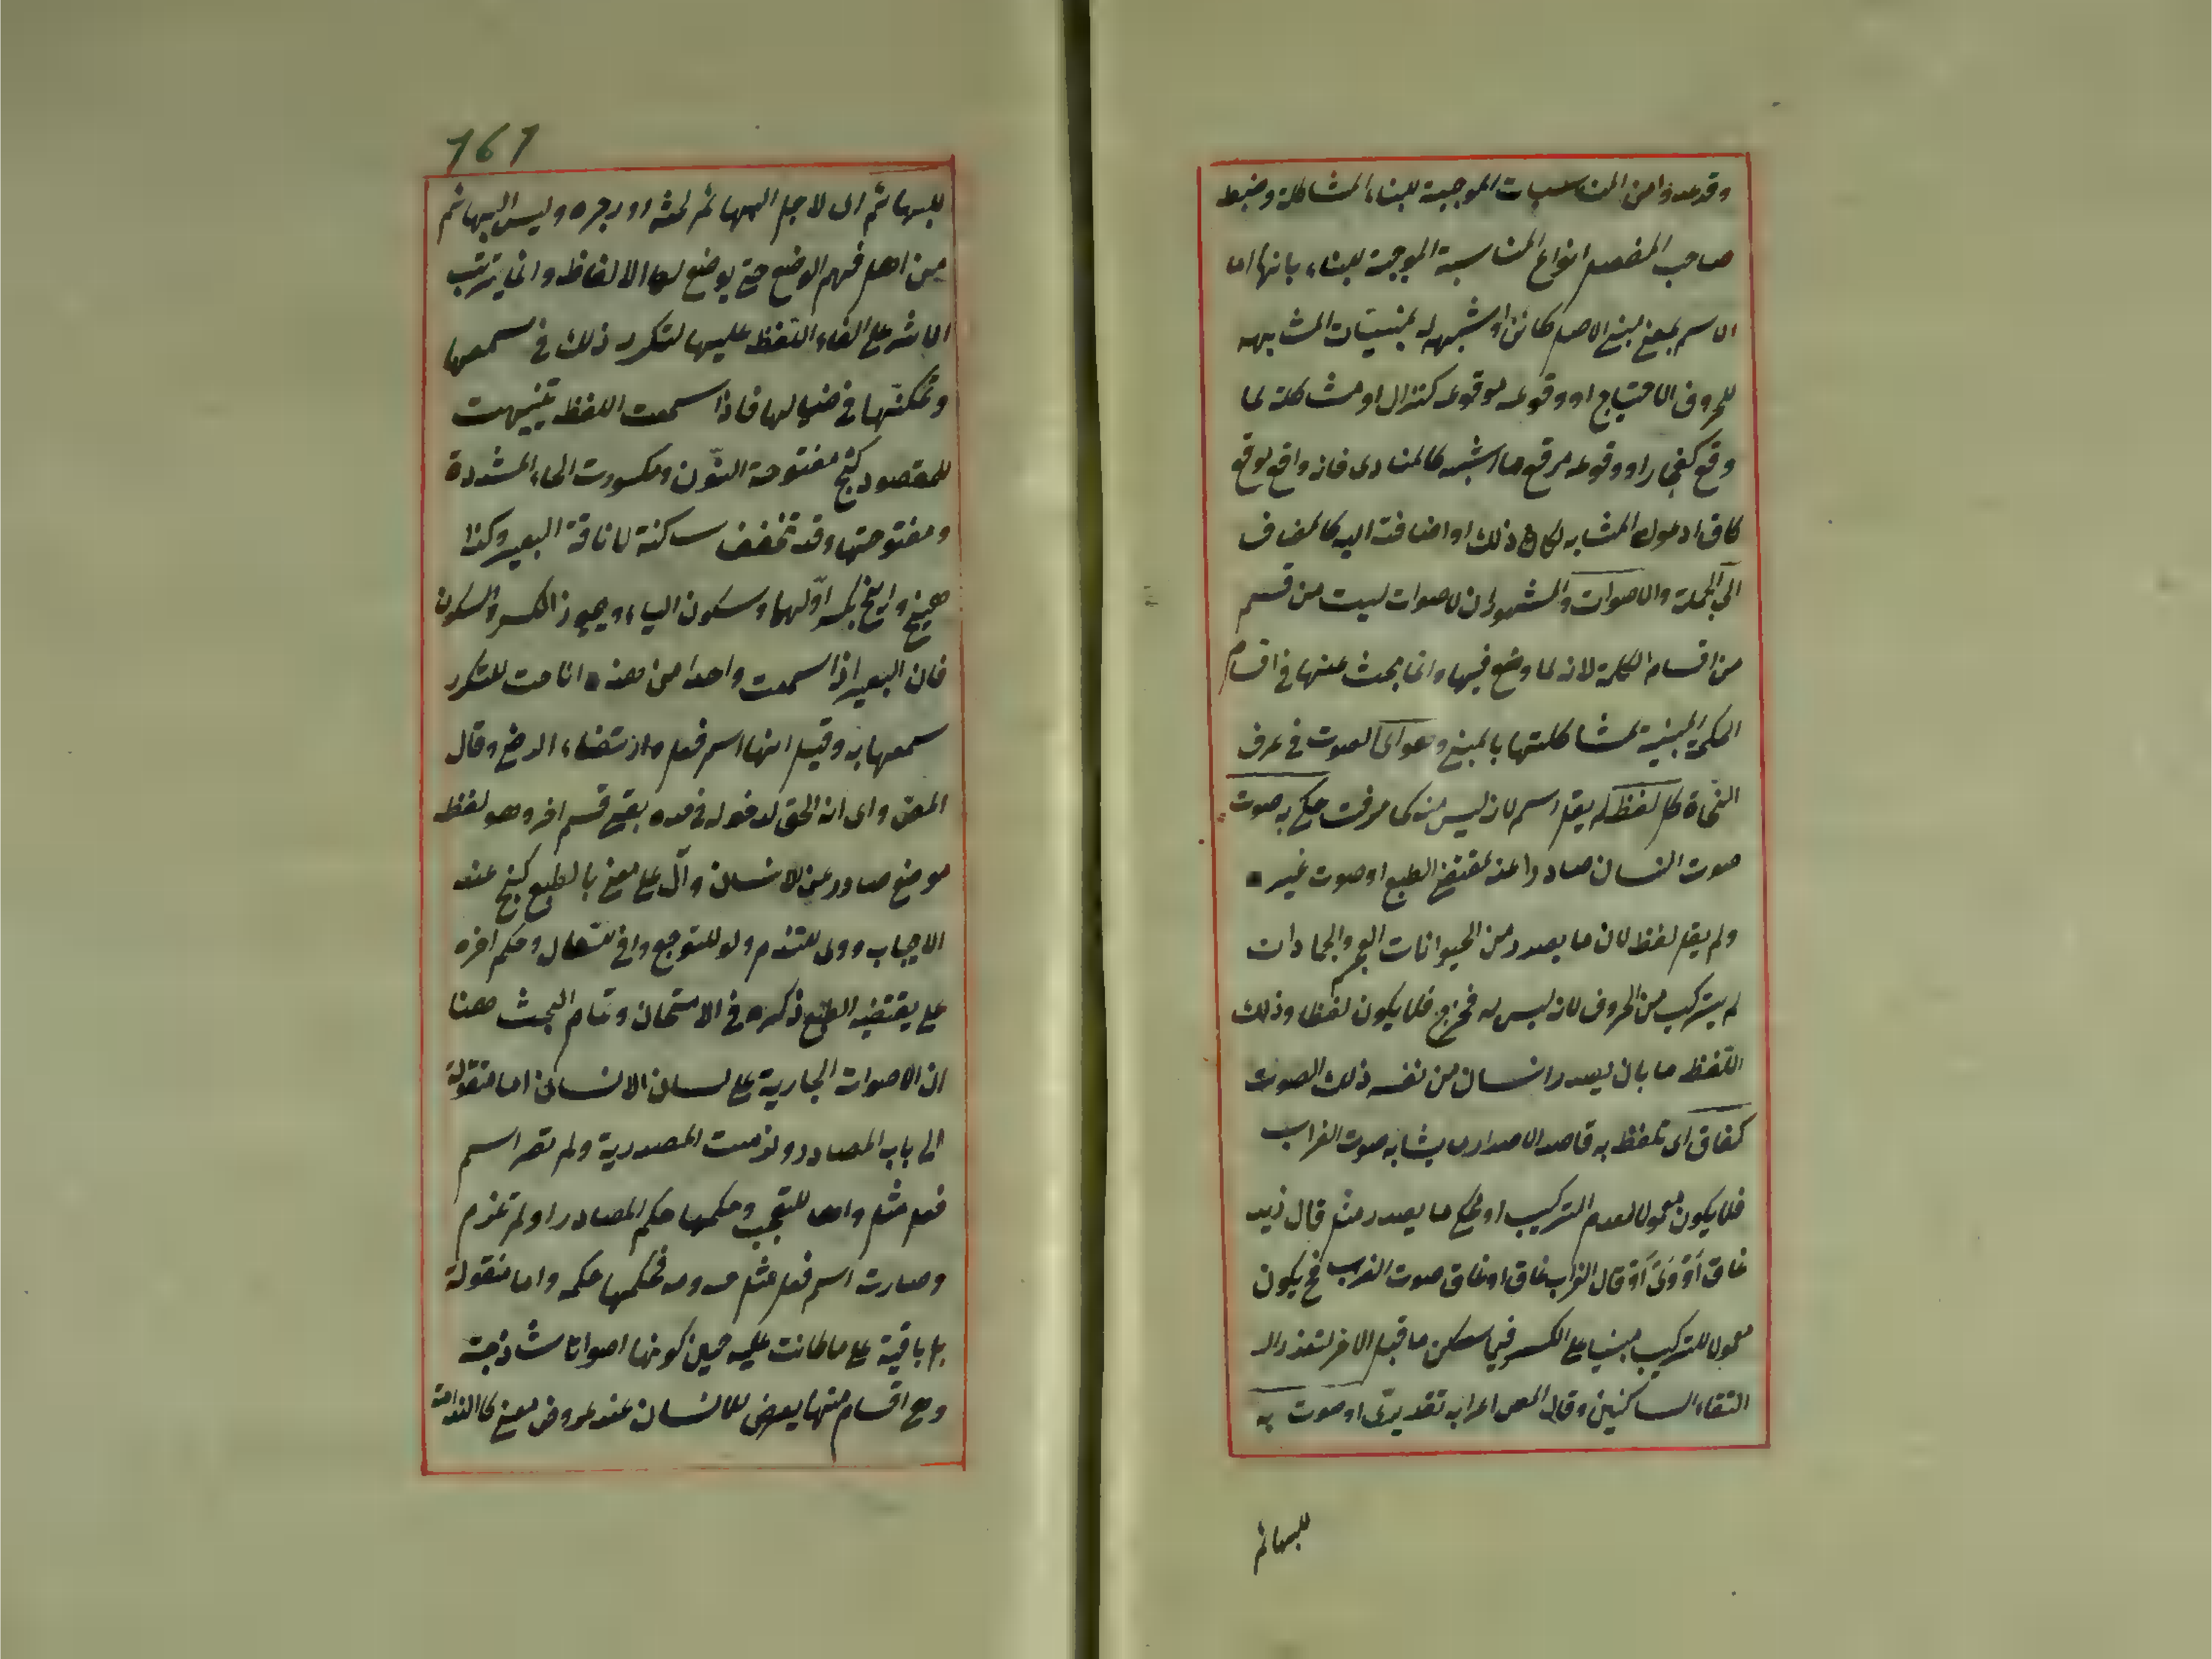 وقد عدوا من المناسبات الموجبة للبناء المشاكلة وضبط
صاحب المفصل انواع المناسبة الموجبة للبناء بانها اما
الاسم بمعنى مبنى الاصل كاين او شبهه له بمنيات المشابهه
للحروف الاحتياج او وقوعه موقوعه كنزال او مشاكلة لما
وقع كفجار او وقوعه موقع ما اشبه كالمنادى فانه واقع موقع
كاف ادعوك المشابه لكاف ذلك او اضافته اليه كالمضاف
الى الجملة والاصوات والمشهور ان الاصوات ليست من قسم
من اقسام الكلمة لانه لما وضع فيها وانما بحث عنها في اقسام
الكلمة المبنية لمشاكلتها بالمبنى وهو اى الصوت في عرف
النحاة كل لفظ لم يقل اسم لانه ليس منه كما عرفت حكى به صوت
صوت انسان صادرا عند مقتضى الطبع او صوت غيره
ولم يقل لفظ لان ما يصدر من الحيوانات العجم والجمادات
لم يتركب من الحروف لانه ليس له مخرج فلا يكون لفظا وذلك
اللفظ ما بان يصدر انسان من نفسه ذلك الصوت
كغاق اى تلفظ به قاصد الاصدار ما يشابه صوت الغراب
فلا يكون معمولا لعدم التركيب او يحكى ما يصدر مثل قال زيد
غاق او قال الغراب غاق او غاق صوت الغراب فح يكون
معمولا للتركيب مبنيا على الكسر فيما سكن ما قبل الاخر لتعذر
التقاء الساكنين وقال المص اعرابه تقديرى او صوت به
للبهائم
161
للبهائم اى لاجل البهائم لحثه او زجره وليس البهائم
من اهل فهم الوضع حتى يوضع لها الالفاظ وانما يترتب
الاثر على القاء اللفظ عليها لتكرر ذلك في مسمعها
وتمكنها في خيالها فاذا سمعت اللفظ تنبهت
للمقصود كنخ مفتوحة النون ومكسورت الخاء المشددة
ومفتوحتها وقد تخفف ساكنة لاناقة البعير وكذا
هيخ وايخ بكسر اولهما وسكون الياء ويجوز الكسر والسكون
فان البعير اذا سمعت واحدا من هذه اناخت لتكرر
سمعها به وقيل انها اسم فعل لاقتضاء الوضع وقال
المص واى انه الحق لدخوله في حده بقى قسم اخر وهو لفظ
موضع صادر عن الانسان دال على معنى بالطبع كبخ عند
الاعجاب ووى للتندم ولو للتوجع واخ للسعال وحكم اخره
على يقتضيه الطبع ذكره في الامتحان وتمام البحث ههنا
ان الاصوات الجارية على لسان الانسان اما منقولة
الى باب المصادر ولزمت المصدرية ولم تصر اسم
فعل مثل واها للتعجب وحكمها حكم المصادر او لم تلزم
وصارت اسم فعل مثل صه ومه فحكمها حكمه واما منقولة
بل باقية على ما كانت عليه حين كونها اصواتا ساذجة
وهى اقسام منها يعرض للانسان عند عروض معنى كالندامة